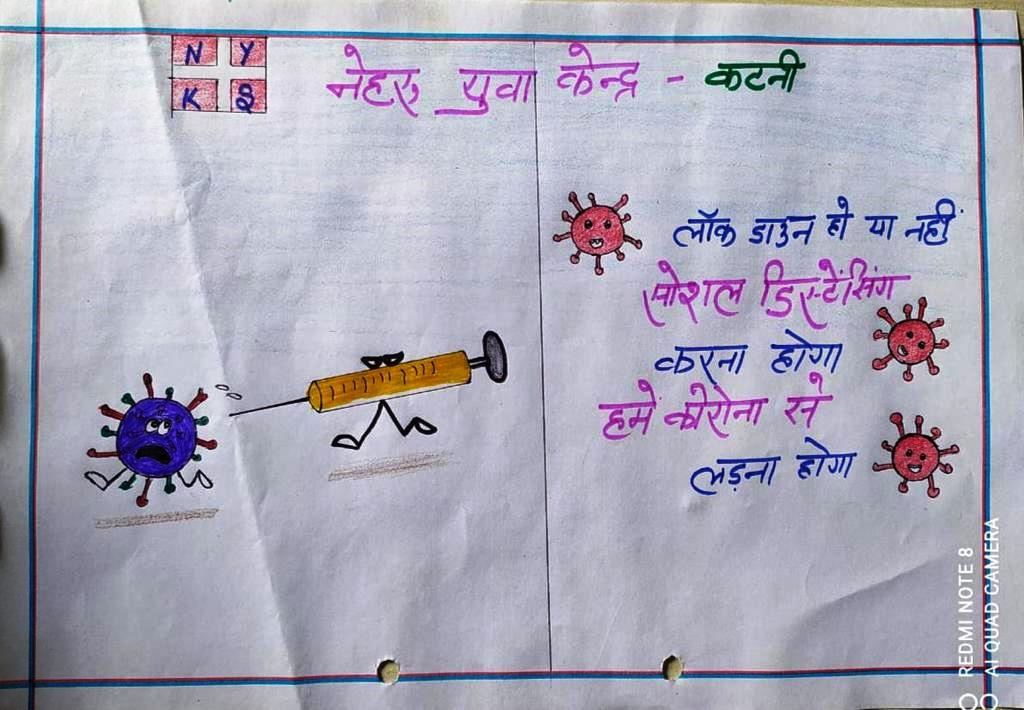 N Y
K S
नेहरु युवा केन्द्र - कटनी
लॉक डाउन हो या नहीं
सोशल डिस्टेंसिंग
करना होगा
हमें कोरोना से
लड़ना होगा
REDMI NOTE 8
AI QUAD CAMERA